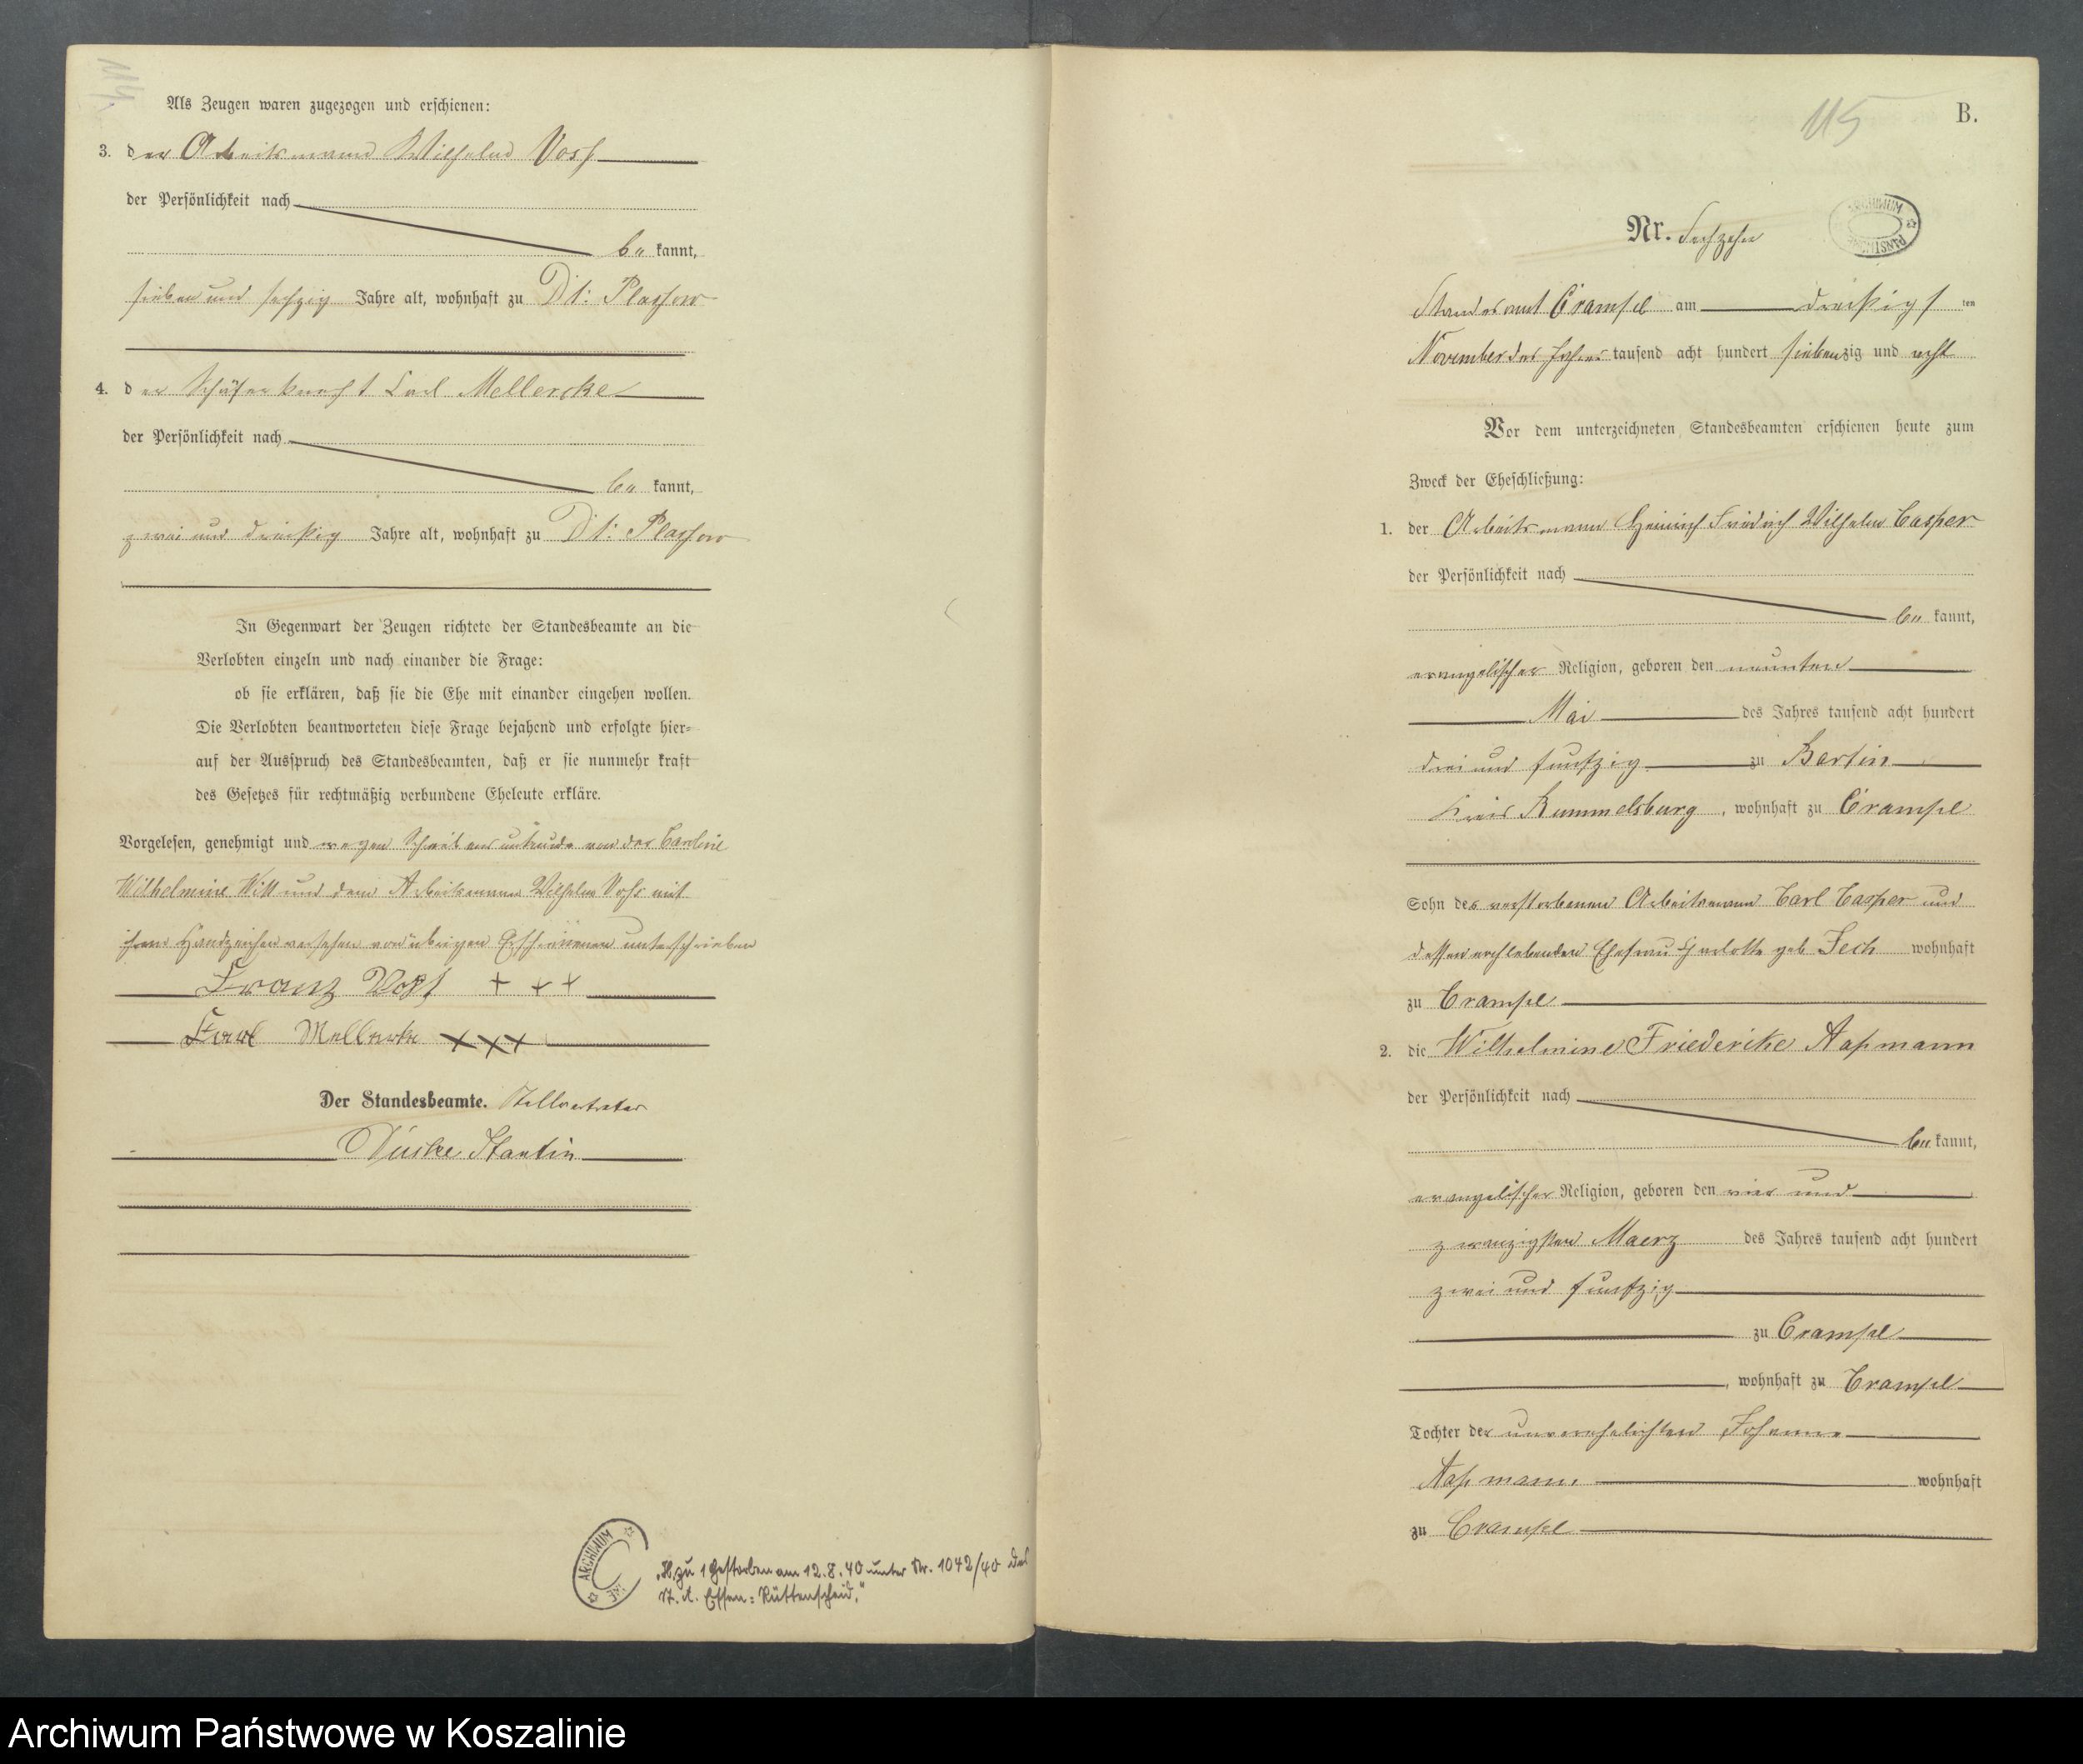 114.
Als Zeugen waren zugezogen und erschienen:
3. der Arbeitsmann Wilhelm Voss
der Persönlichkeit nach
be kannt,
sieben und sechzig Jahre alt, wohnhaft zu Dt: Plassow
4. der Schäferknecht Carl Mellercke
der Persönlichkeit nach
be kannt,
zwei und dreißig Jahre alt, wohnhaft zu Dt: Plassow
In Gegenwart der Zeugen richtete der Standesbeamte an die
Verlobten einzeln und nach einander die Frage:
ob sie erklären, daß sie die Ehe mit einander eingehen wollen.
Die Verlobten beantworteten diese Frage bejahend und erfolgte hier-
auf der Ausspruch des Standesbeamten, daß er sie nunmehr kraft
des Gesetzes für rechtmäßig verbundene Eheleute erkläre.
Vorgelesen, genehmigt und wegen Schreibensunkunde von der
Wilhelmine Witt und dem Arbeitsmann Wilhelm Voss mit
ihrem Handzeichen versehen von übrigen Erschienenen unterschrieben
Franz +++
Karl Mellerke +++
Der Standesbeamte. Stellvertreter
ARCHIWUM
zu 1 Gestorben am 12.8.40 unter Nr. 1042/40 des
St. A. Essen-Rüttenscheid."
115
B.
Nr. Sechzehn
ARCHIWUM PAŃSTWOWE
Standesamt Crampel am dreißigsten
November des Jahres tausend acht hundert siebenzig und acht
Vor dem unterzeichneten Standesbeamten erschienen heute zum
Zweck der Eheschließung:
1. der Arbeitsmann Heinrich Friedrich Wilhelm Casper
der Persönlichkeit nach
be kannt,
evangelischer Religion, geboren den neunten
Mai des Jahres tausend acht hundert
drei und funfzig zu Bartin
Kreis Rummelsburg, wohnhaft zu Crampel
Sohn des verstorbenen Arbeitsmann Carl Casper und
dessen nachlebenden Ehefrau Charlotte geb Zech wohnhaft
zu Crampel
2. die Wilhelmine Friederike Aaßmann
der Persönlichkeit nach
be kannt,
evangelischer Religion, geboren den vier und
zwanzigsten Maerz des Jahres tausend acht hundert
zwei und funfzig
zu Crampel
, wohnhaft zu Crampel
Tochter der unverehelichten Johanne
Aaßmann wohnhaft
zu Crampel
Archiwum Państwowe w Koszalinie